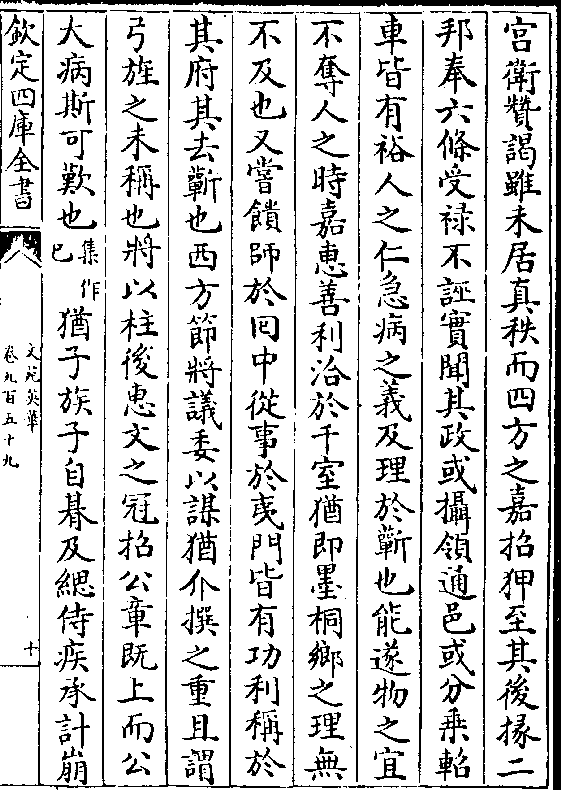 宫衛贊謁雖未居真秩而四方之嘉招狎至其後掾二
邦奉六條受禄不誣實聞其政或攝領通邑或分乗軺
車皆有裕人之仁急病之義及理於蘄也能遂物之宜
不奪人之時嘉惠善利洽於千室猶即墨桐鄉之理無
不及也又嘗饋師於回中從事於夷門皆有功利稱於
其府其去蘄也西方節將議委以謀猶介撰之重且謂
弓旌之未稱也將以柱後惠文之冠招公章既上而公
大病斯可歎也集作已猶子族子自朞及緦侍疾承計崩
欽定四庫全書
文苑英華
卷九百五十九
十